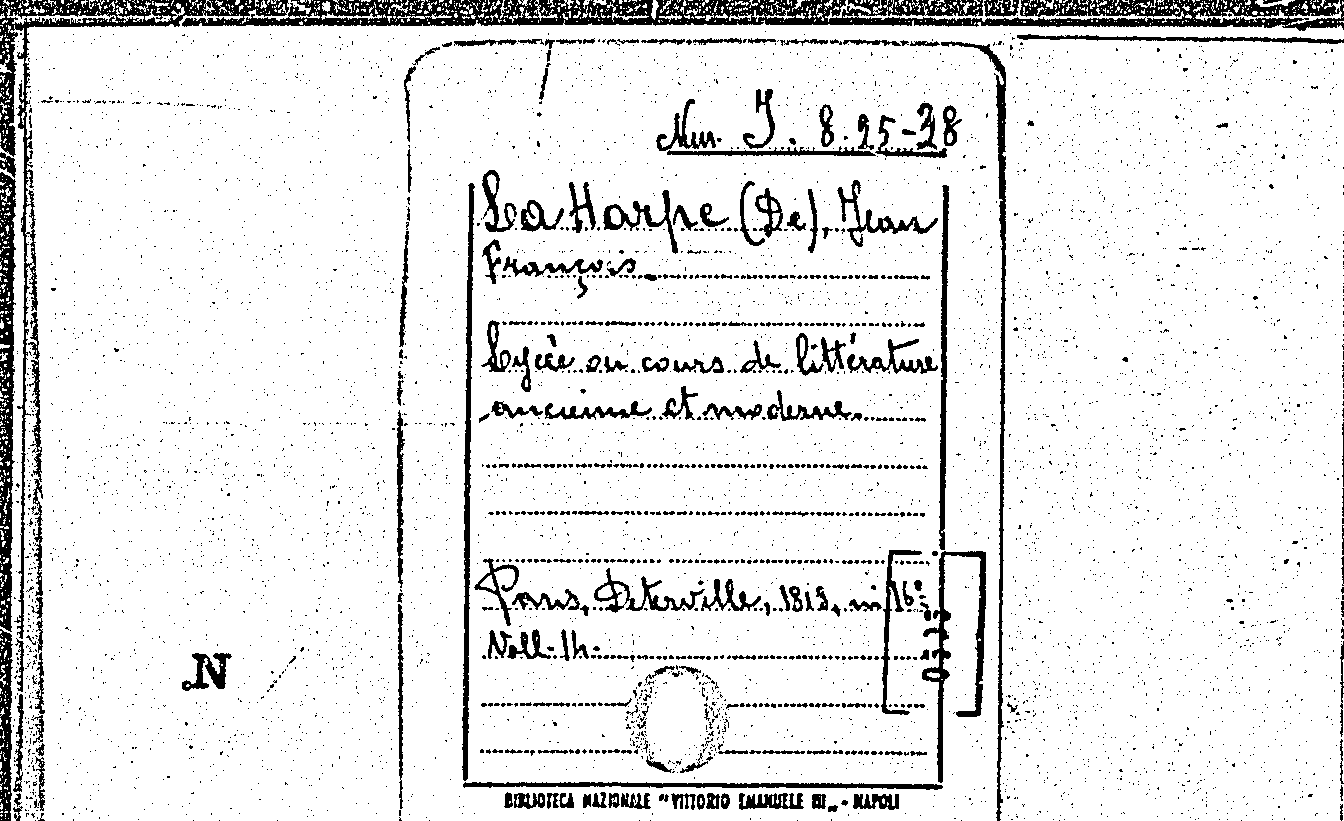 Nm. J. 8. 25-38
La Harpe (De), Jean
François.
Lycée ou cours de littérature
ancienne et moderne.
Paris, Deterville, 1818, in 16º
Voll. 14.
N
BIBLIOTECA NAZIONALE "VITTORIO EMANUELE III„ - NAPOLI